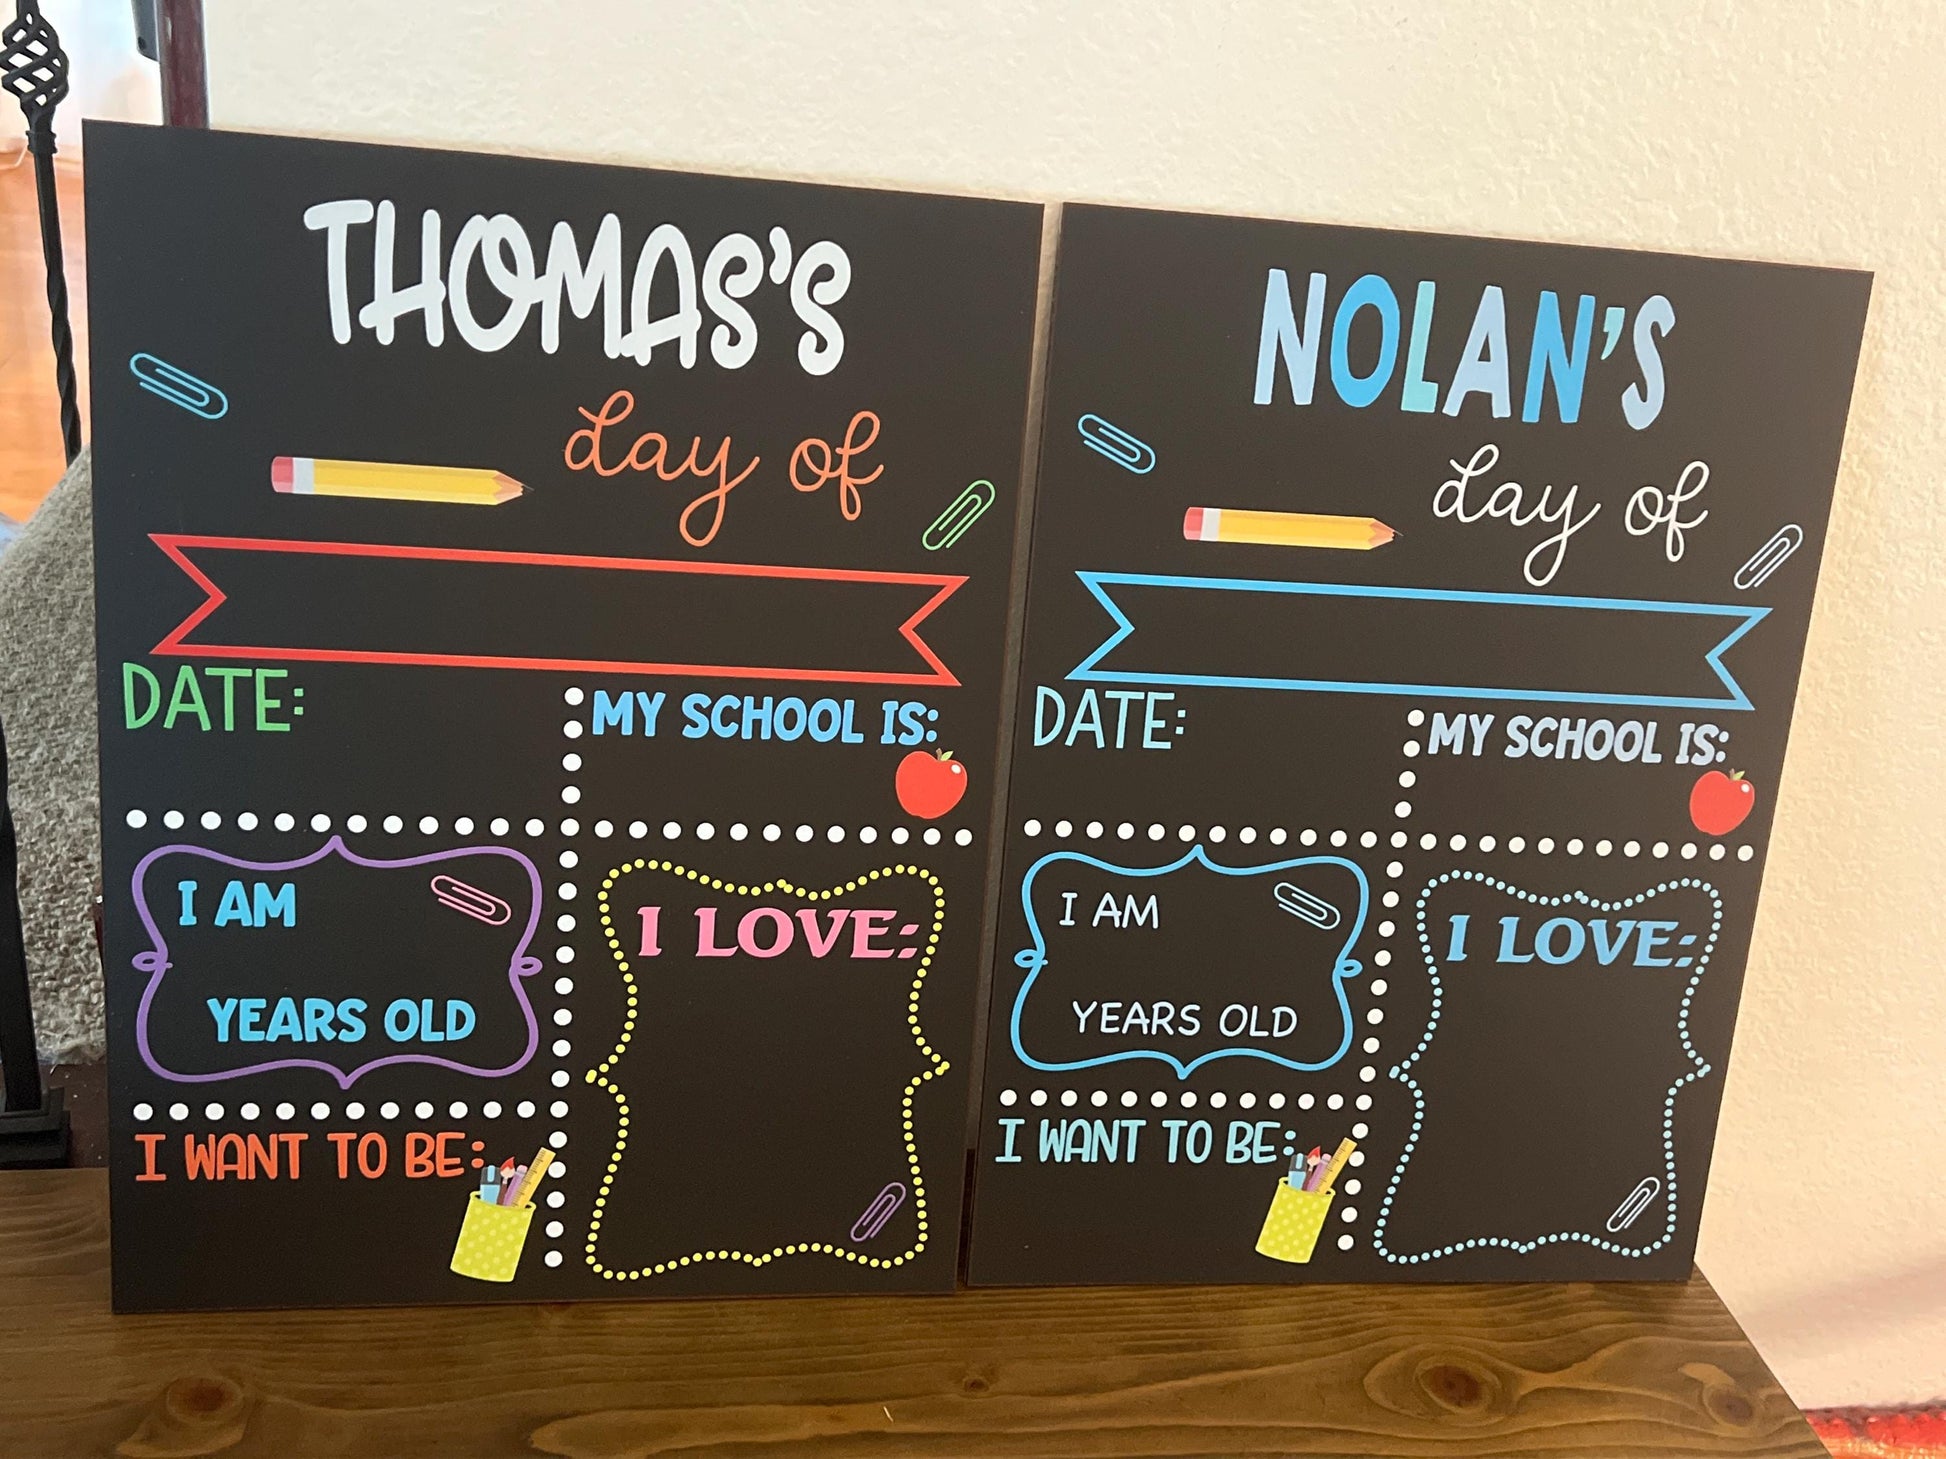 THOMAS'S
day of
DATE:
MY SCHOOL IS:
I AM
YEARS OLD
I LOVE:
I WANT TO BE:
NOLAN'S
day of
DATE:
MY SCHOOL IS:
I AM
YEARS OLD
I LOVE:
I WANT TO BE: